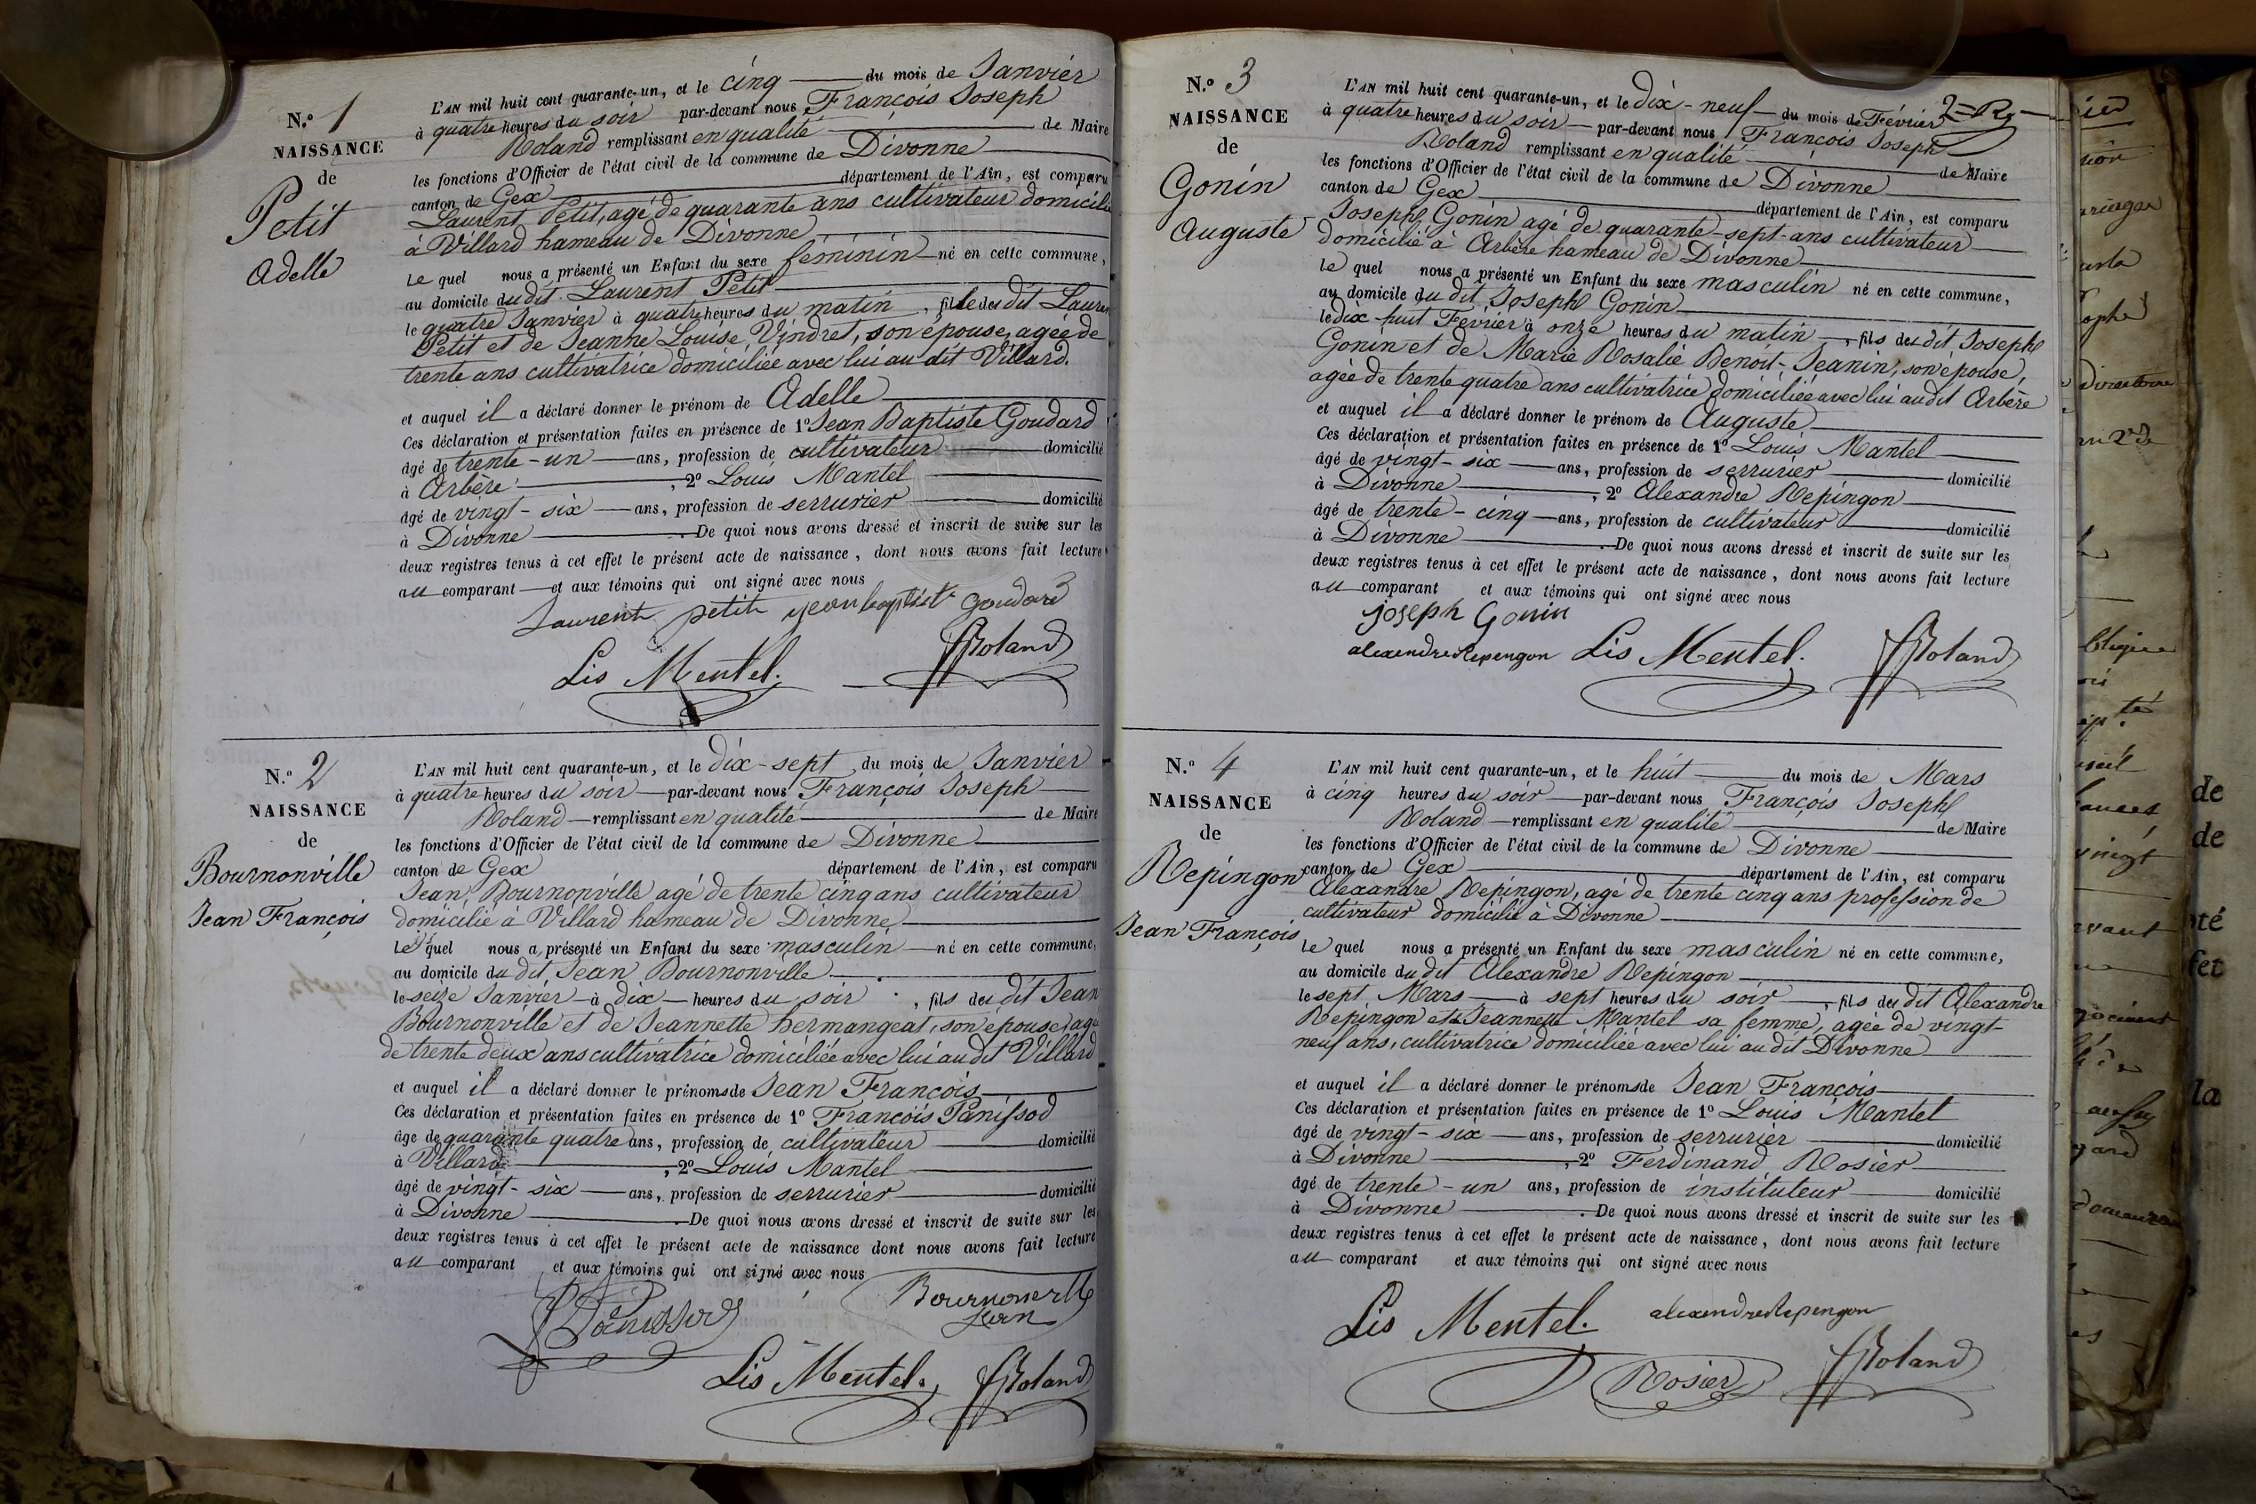 N.º 1
NAISSANCE
de
Petit
Adelle
L'AN mil huit cent quarante-un, et le cinq du mois de Janvier
à quatre heures du soir par-devant nous François Joseph
Roland remplissant en qualité de Maire
les fonctions d'Officier de l'état civil de la commune de Divonne
canton de Gex département de l'Ain, est comparu
Laurent Petit, agé de quarante ans cultivateur domicilié
à Villard hameau de Divonne
Le quel nous a présenté un Enfant du sexe féminin né en cette commune,
au domicile du dit Laurent Petit
le quatre Janvier à quatre heures du matin, fille des dit Laurent
Petit et de Jeanne Louise Vindret, son épouse, agée de
trente ans cultivatrice domiciliée avec lui au dit Villard.
et auquel il a déclaré donner le prénom de Adelle
Ces déclaration et présentation faites en présence de 1º Jean Baptiste Goudard
âgé de trente-un ans, profession de cultivateur domicilié
à Arbère, 2º Louis Mantel
âgé de vingt-six ans, profession de serrurier domicilié
à Divonne. De quoi nous avons dressé et inscrit de suite sur les
deux registres tenus à cet effet le présent acte de naissance, dont nous avons fait lecture
au comparant et aux témoins qui ont signé avec nous
Laurent petit jean baptist goudard
Lis Mentel. Roland
N.º 2
NAISSANCE
de
Bournonville
Jean François
L'AN mil huit cent quarante-un, et le dix-sept du mois de Janvier
à quatre heures du soir par-devant nous François Joseph
Roland remplissant en qualité de Maire
les fonctions d'Officier de l'état civil de la commune de Divonne
canton de Gex département de l'Ain, est comparu
Jean Bournonville agé de trente cinq ans cultivateur
domicilié à Villard hameau de Divonne
Le quel nous a présenté un Enfant du sexe masculin né en cette commune,
au domicile du dit Jean Bournonville
le seize Janvier à dix heures du soir, fils des dit Jean
Bournonville et de Jeannette hermangeat, son épouse, agé
de trente deux ans cultivatrice domiciliée avec lui au dit Villard
et auquel il a déclaré donner le prénoms de Jean François
Ces déclaration et présentation faites en présence de 1º François Panissod
âge de quarante quatre ans, profession de cultivateur domicilié
à Villard, 2º Louis Mantel
âgé de vingt-six ans, profession de serrurier domicilié
à Divonne. De quoi nous avons dressé et inscrit de suite sur les
deux registres tenus à cet effet le présent acte de naissance dont nous avons fait lecture
au comparant et aux témoins qui ont signé avec nous
Panissod Bournonville
Jean
Lis Mentel. Roland
N.º 3
NAISSANCE
de
Gonin
Auguste
L'AN mil huit cent quarante-un, et le dix-neuf du mois de Février
à quatre heures du soir par-devant nous François Joseph
Roland remplissant en qualité de Maire
les fonctions d'Officier de l'état civil de la commune de Divonne
canton de Gex département de l'Ain, est comparu
Joseph Gonin agé de quarante-sept ans cultivateur
domicilié à Arbère hameau de Divonne
Le quel nous a présenté un Enfant du sexe masculin né en cette commune,
au domicile du dit Joseph Gonin
le dix huit Février à onze heures du matin, fils des dit Joseph
Gonin et de Marie Rosalie Benoit-Jeanin, son épouse,
agée de trente quatre ans cultivatrice domiciliée avec lui au dit Arbère
et auquel il a déclaré donner le prénom de Auguste
Ces déclaration et présentation faites en présence de 1º Louis Mantel
âgé de vingt-six ans, profession de serrurier domicilié
à Divonne, 2º Alexandre Repingon
âgé de trente-cinq ans, profession de cultivateur domicilié
à Divonne. De quoi nous avons dressé et inscrit de suite sur les
deux registres tenus à cet effet le présent acte de naissance, dont nous avons fait lecture
au comparant et aux témoins qui ont signé avec nous
joseph Gonin
alexendre Repengon Lis Mentel. Roland
N.º 4
NAISSANCE
de
Repingon
Jean François
L'AN mil huit cent quarante-un, et le huit du mois de Mars
à cinq heures du soir par-devant nous François Joseph
Roland remplissant en qualité de Maire
les fonctions d'Officier de l'état civil de la commune de Divonne
canton de Gex département de l'Ain, est comparu
Alexandre Repingon, agé de trente cinq ans profession de
cultivateur domicilié à Divonne
Le quel nous a présenté un Enfant du sexe masculin né en cette commune,
au domicile du dit Alexandre Repingon
le sept Mars à sept heures du soir, fils des dit Alexandre
Repingon et de Jeannette Mantel sa femme, agée de vingt-
neuf ans, cultivatrice domiciliée avec lui au dit Divonne
et auquel il a déclaré donner le prénoms de Jean François
Ces déclaration et présentation faites en présence de 1º Louis Mantel
âgé de vingt-six ans, profession de serrurier domicilié
à Divonne, 2º Ferdinand Rosier
âgé de trente-un ans, profession de instituteur domicilié
à Divonne. De quoi nous avons dressé et inscrit de suite sur les
deux registres tenus à cet effet le présent acte de naissance, dont nous avons fait lecture
au comparant et aux témoins qui ont signé avec nous
Lis Mentel. alexendre Repengon
Rosier Roland
de
de
la